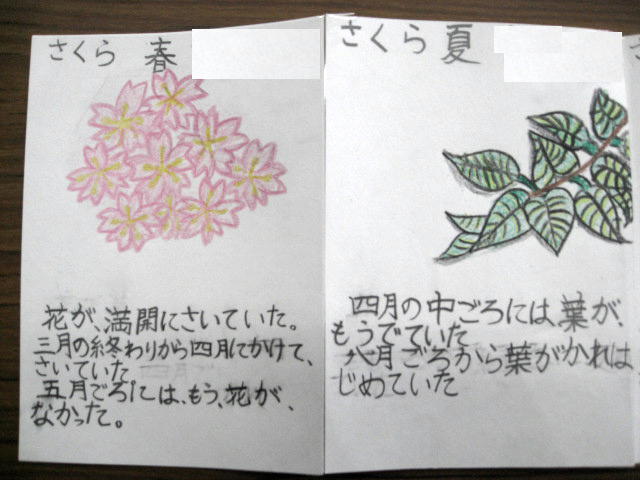 さくら 春
花が、満開にさいていた。
三月の終わりから四月にかけて、
さいていた
五月ごろには、もう、花が、
なかった。
さくら 夏
四月の中ごろには、葉が、
もうでていた
八月ごろから葉がかれは
じめていた